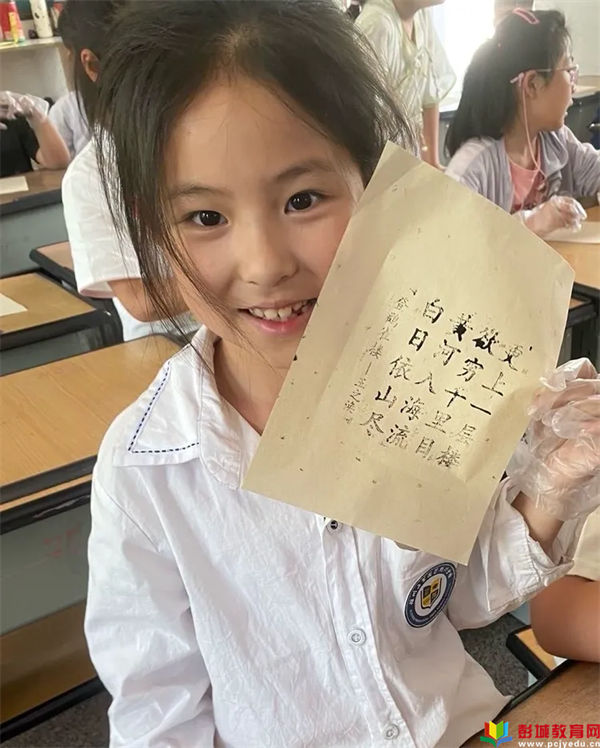 登鹳雀楼—王之涣
白日依山尽
黄河入海流
欲穷千里目
更上一层楼
彭城教育网
www.pcjyedu.cn